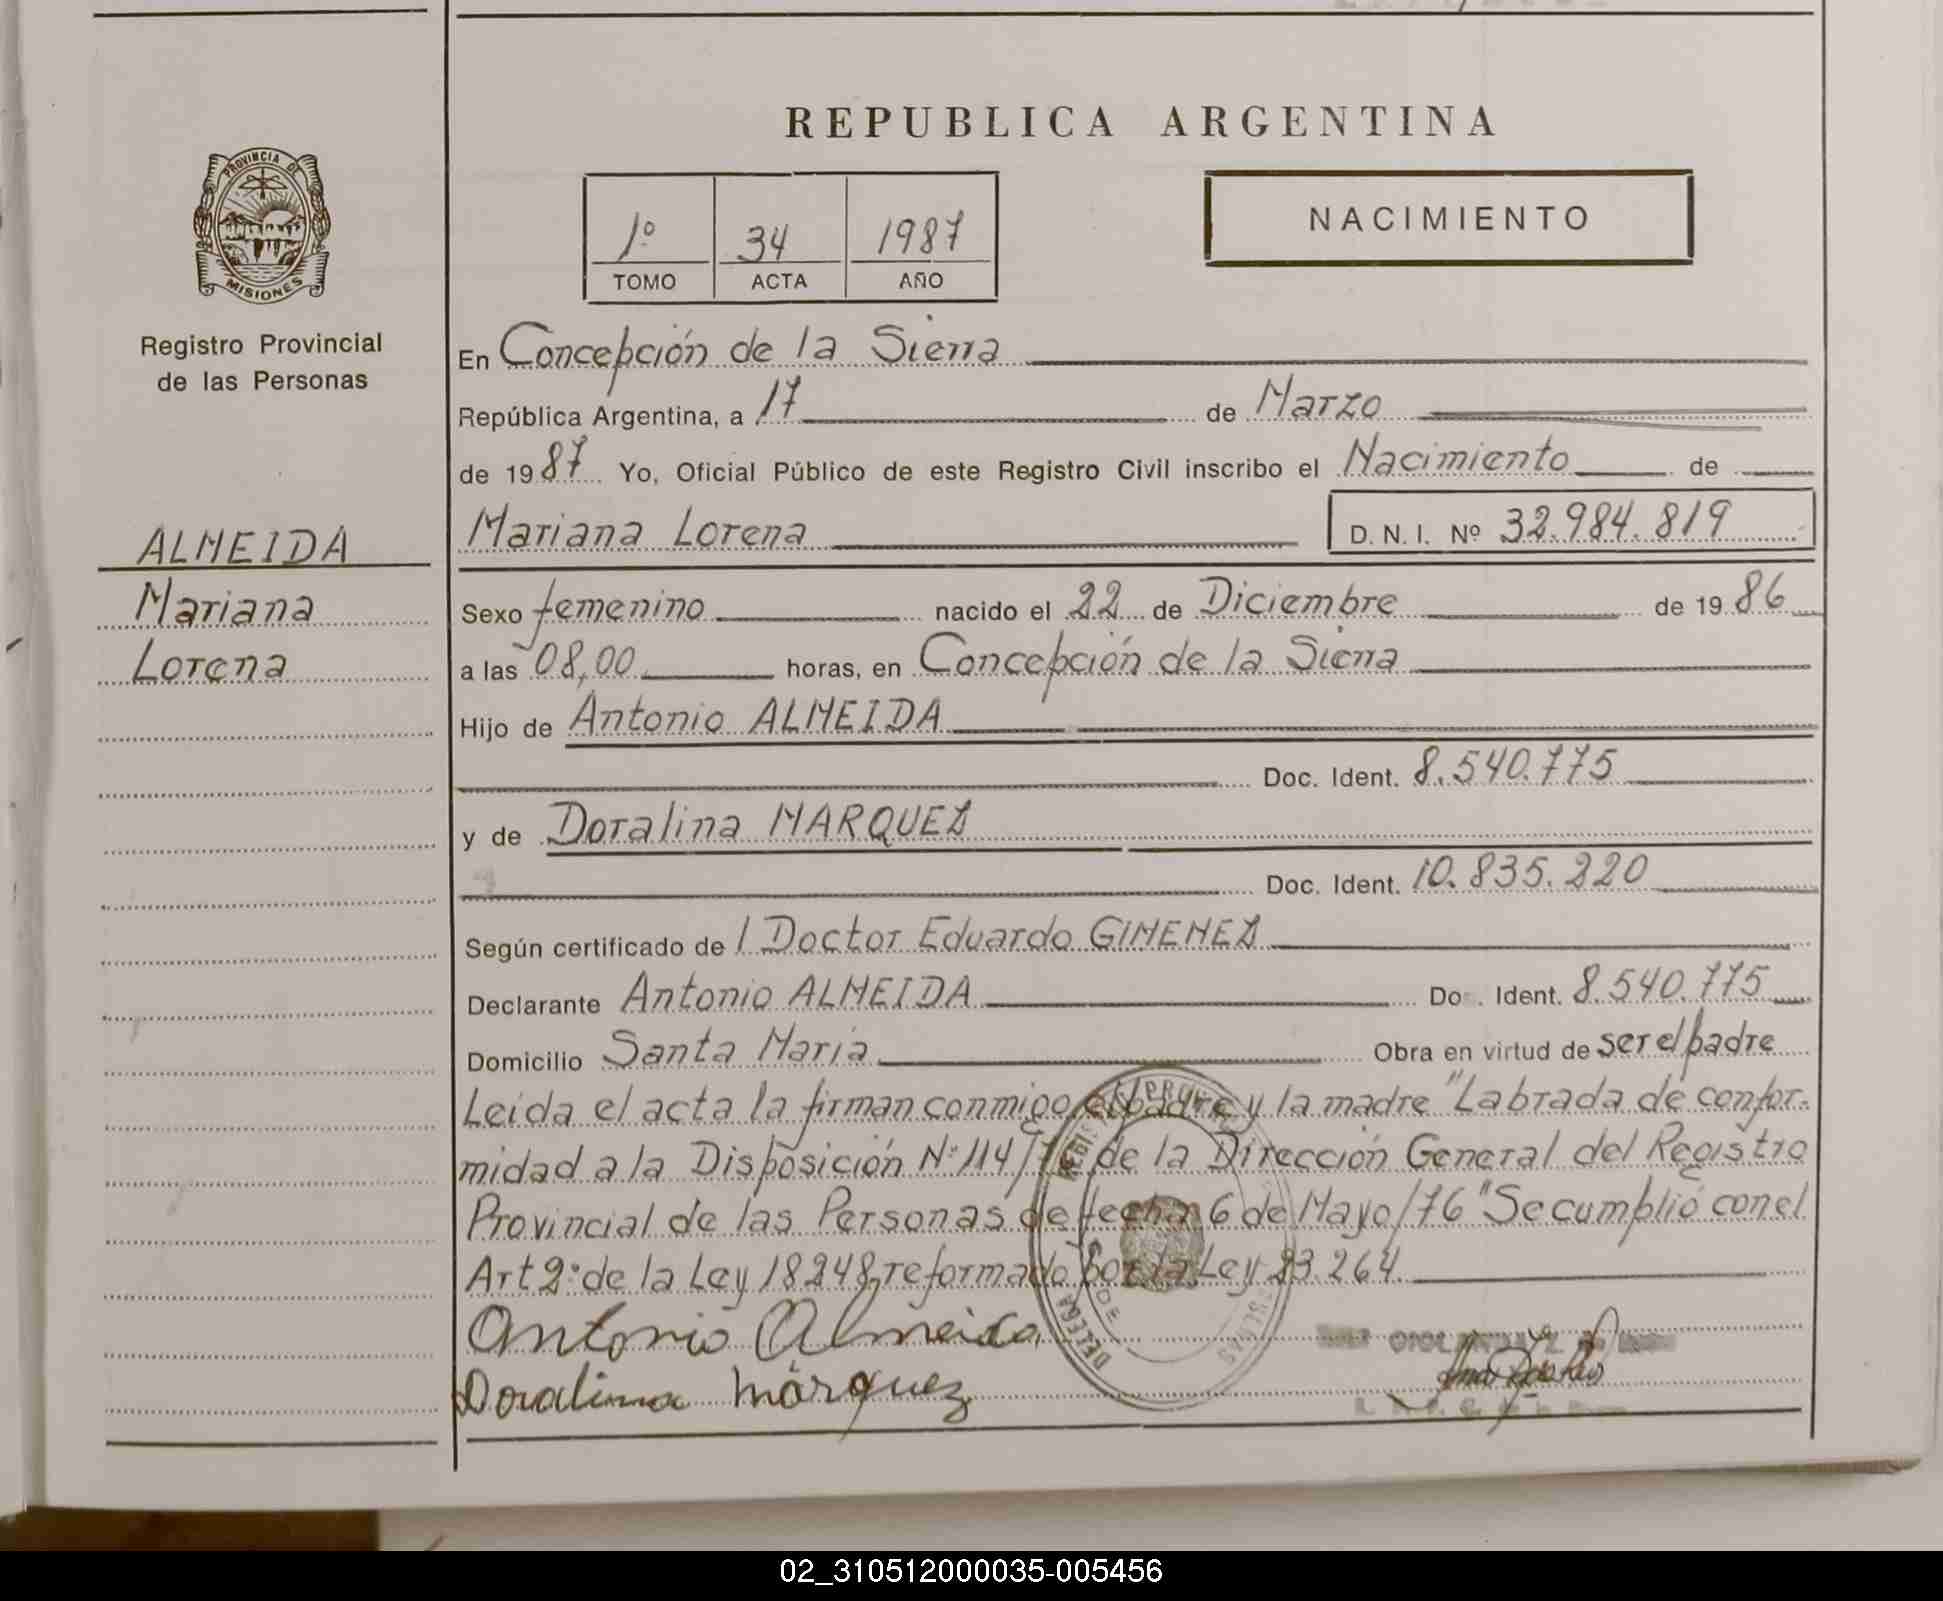 REPUBLICA ARGENTINA
PROVINCIA DE
MISIONES
Registro Provincial
de las Personas
1º 34 1987
TOMO ACTA AÑO
NACIMIENTO
En Concepción de la Sierra
República Argentina, a 17 de Marzo
de 1987 Yo, Oficial Público de este Registro Civil inscribo el Nacimiento de
Mariana Lorena D. N. I. Nº 32.984.819
ALMEIDA
Mariana
Lorena
Sexo femenino nacido el 22 de Diciembre de 1986
a las 08,00 horas, en Concepción de la Sierra
Hijo de Antonio ALMEIDA
Doc. Ident. 8.540.775
y de Doralina MARQUEZ
Doc. Ident. 10.835.220
Según certificado de l Doctor Eduardo GIMENEZ
Declarante Antonio ALMEIDA Doc. Ident. 8.540.775
Domicilio Santa María Obra en virtud de ser el padre
Leida el acta la firman conmigo el padre y la madre "Labrada de confor-
midad a la Disposición Nº 114/76 de la Dirección General del Registro
Provincial de las Personas de fecha 6 de Mayo/76" Se cumplió con el
Art 2º de la Ley 18248, reformado por la Ley 23.264
Antonio Almeida
Doralina Márquez
02_310512000035-005456